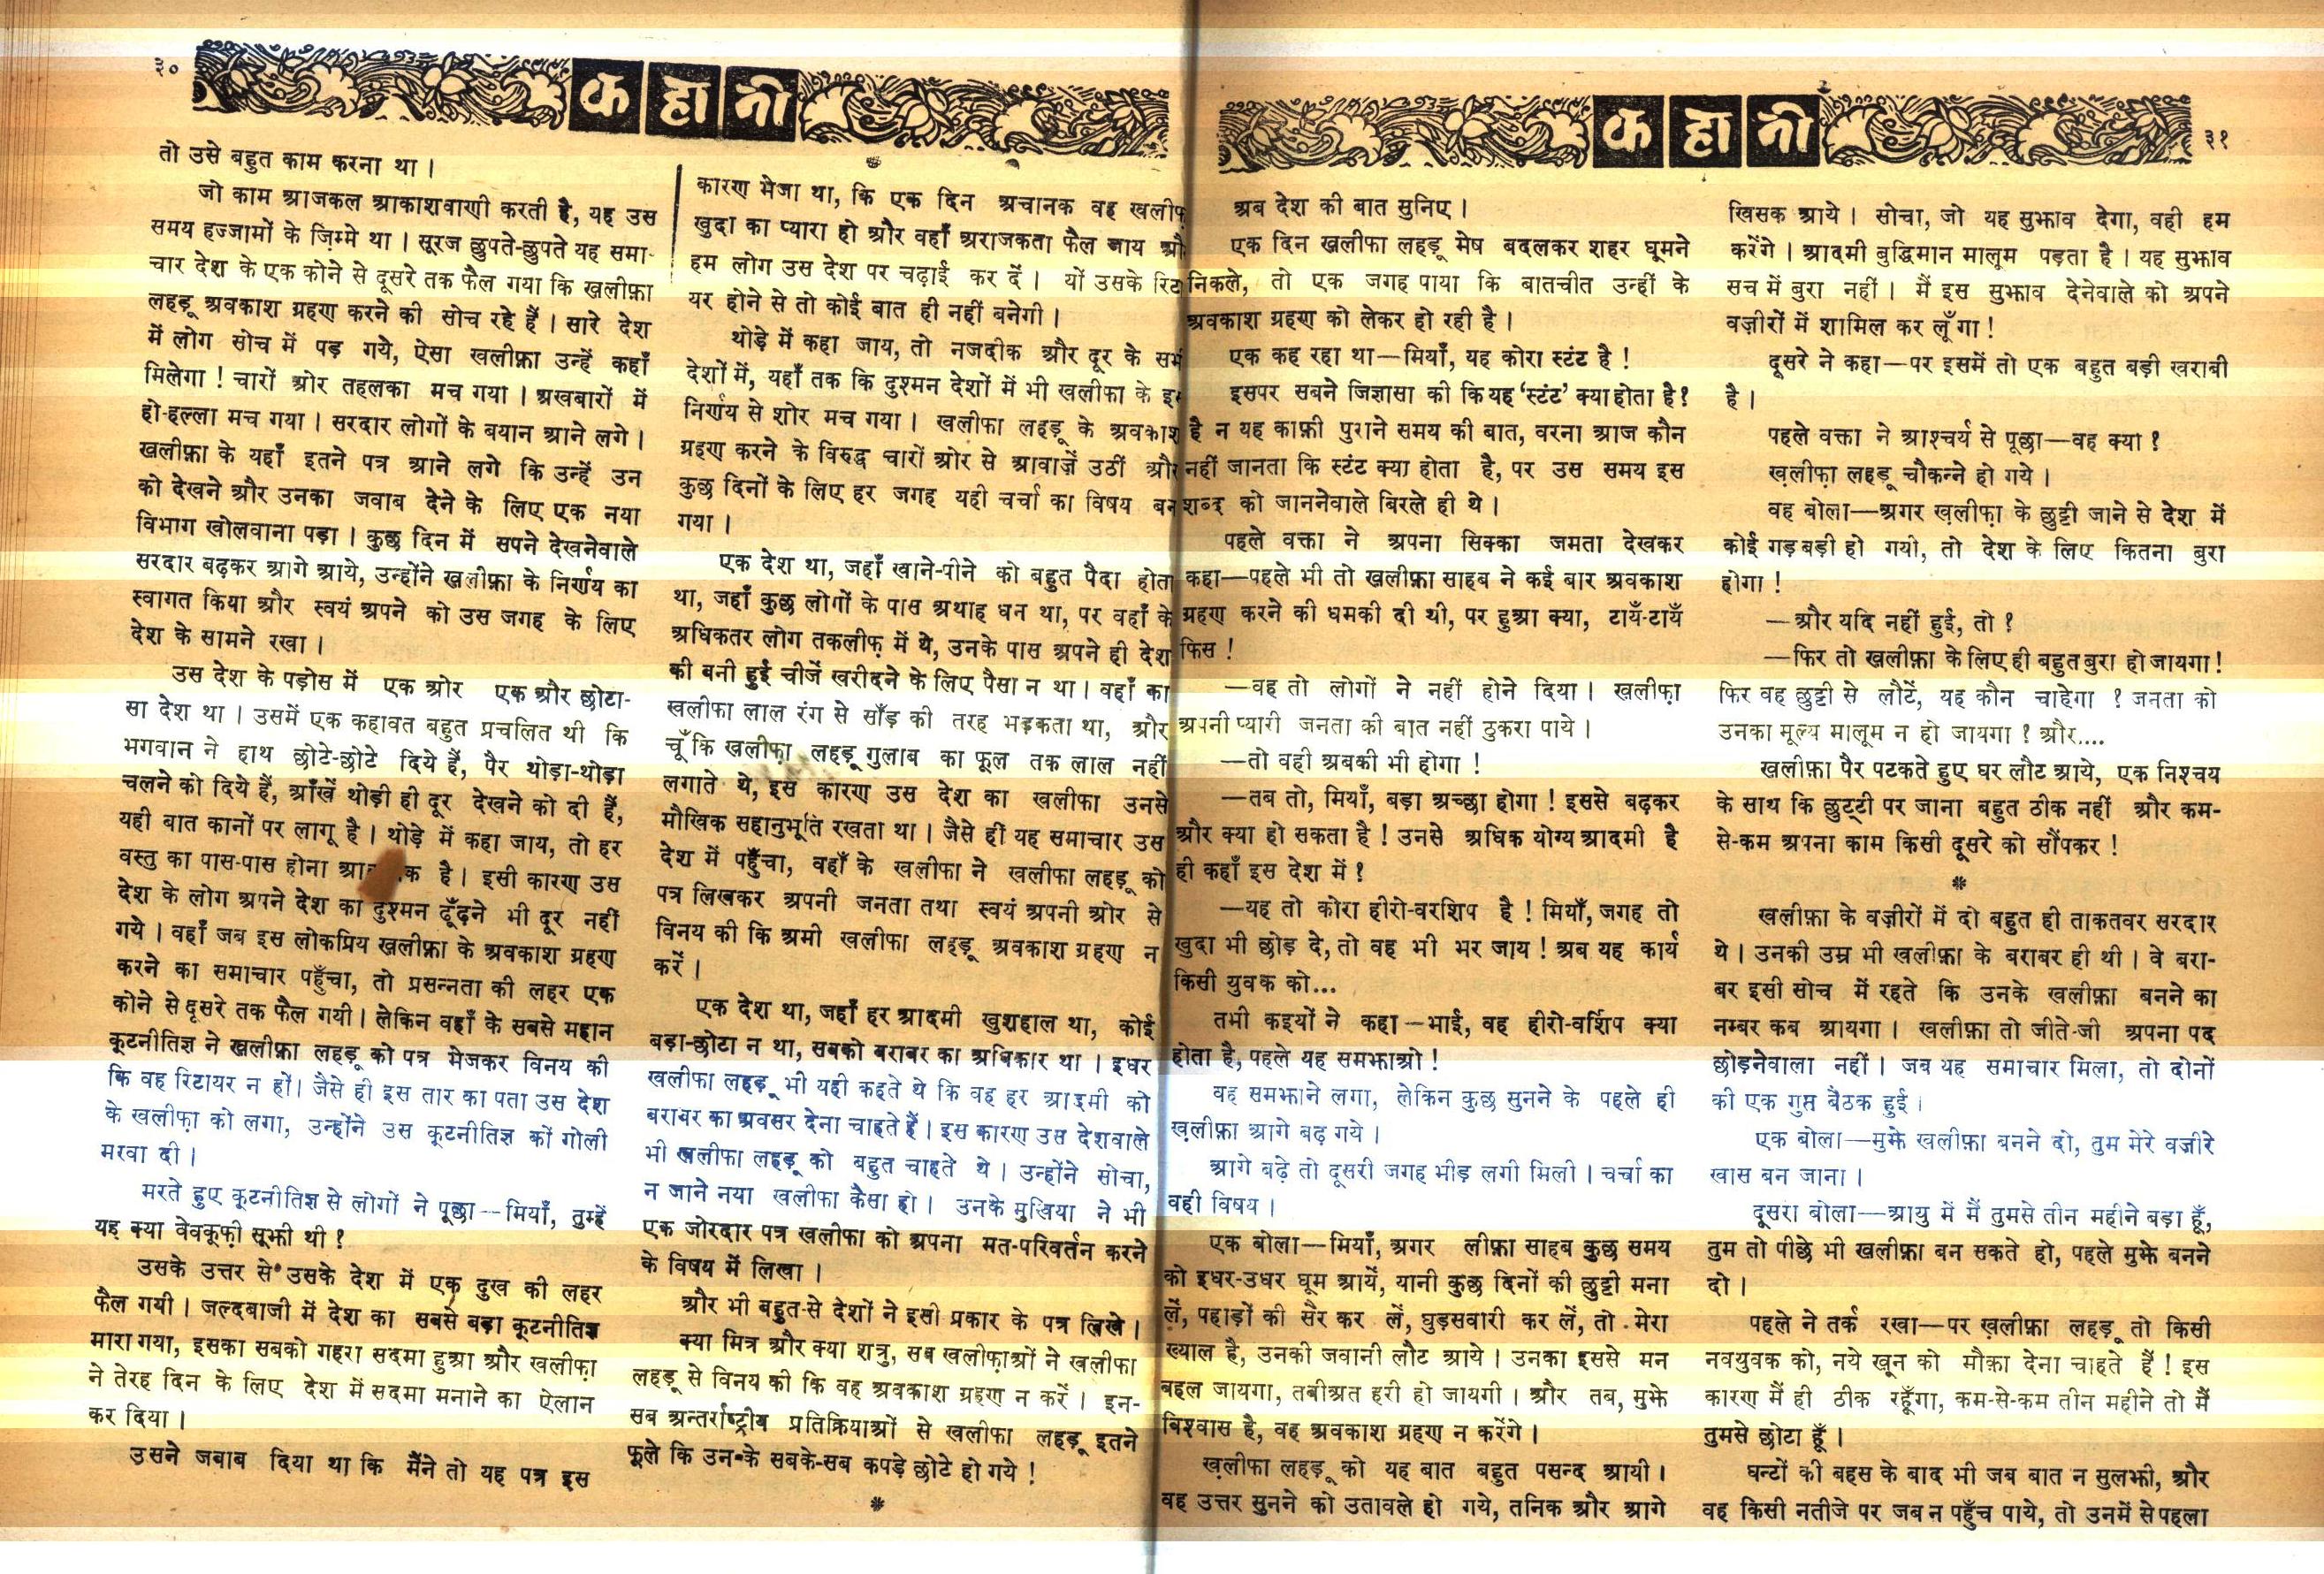 ३०
कहानी
तो उसे बहुत काम करना था ।
जो काम आजकल आकाशवाणी करती है, यह उस
समय हज्जामों के ज़िम्मे था । सूरज छुपते-छुपते यह समा-
चार देश के एक कोने से दूसरे तक फैल गया कि खलीफ़ा
लहड़ू अवकाश ग्रहण करने की सोच रहे हैं । सारे देश
में लोग सोच में पड़ गये, ऐसा खलीफ़ा उन्हें कहाँ
मिलेगा ! चारों ओर तहलका मच गया । अखबारों में
हो-हल्ला मच गया । सरदार लोगों के बयान आने लगे ।
खलीफ़ा के यहाँ इतने पत्र आने लगे कि उन्हें उन
को देखने और उनका जवाब देने के लिए एक नया
विभाग खोलवाना पड़ा । कुछ दिन में सपने देखनेवाले
सरदार बढ़कर आगे आये, उन्होंने खलीफ़ा के निर्णय का
स्वागत किया और स्वयं अपने को उस जगह के लिए
देश के सामने रखा ।
उस देश के पड़ोस में एक ओर एक और छोटा-
सा देश था । उसमें एक कहावत बहुत प्रचलित थी कि
भगवान ने हाथ छोटे-छोटे दिये हैं, पैर थोड़ा-थोड़ा
चलने को दिये हैं, आँखें थोड़ी ही दूर देखने को दी हैं,
यही बात कानों पर लागू है । थोड़े में कहा जाय, तो हर
वस्तु का पास-पास होना है । इसी कारण उस
देश के लोग अपने देश का दुश्मन ढूँढ़ने भी दूर नहीं
गये । वहाँ जब इस लोकप्रिय खलीफ़ा के अवकाश ग्रहण
करने का समाचार पहुँचा, तो प्रसन्नता की लहर एक
कोने से दूसरे तक फैल गयी । लेकिन वहाँ के सबसे महान
कूटनीतिज्ञ ने खलीफ़ा लहड़ू को पत्र भेजकर विनय की
कि वह रिटायर न हों। जैसे ही इस तार का पता उस देश
के खलीफ़ा को लगा, उन्होंने उस कूटनीतिज्ञ कों गोली
मरवा दी ।
मरते हुए कूटनीतिज्ञ से लोगों ने पूछा—मियाँ, तुम्हें
यह क्या वेवकूफ़ी सूझी थी !
उसके उत्तर से उसके देश में एक दुख की लहर
फैल गयी । जल्दबाजी में देश का सबसे बड़ा कूटनीतिज्ञ
मारा गया, इसका सबको गहरा सदमा हुआ और खलीफ़ा
ने तेरह दिन के लिए देश में सदमा मनाने का ऐलान
कर दिया ।
उसने जबाब दिया था कि मैंने तो यह पत्र इस
कारण भेजा था, कि एक दिन अचानक वह
खुदा का प्यारा हो और वहाँ अराजकता फैल जाय
हम लोग उस देश पर चढ़ाई कर दें । यों उसके
यर होने से तो कोई बात ही नहीं बनेगी ।
थोड़े में कहा जाय, तो नजदीक और दूर के
देशों में, यहाँ तक कि दुश्मन देशों में भी खलीफा के
निर्णय से शोर मच गया । खलीफा लहड़ू के अवकाश
ग्रहण करने के विरुद्ध चारों ओर से आवाज़ें उठीं और
कुछ दिनों के लिए हर जगह यही चर्चा का विषय बन
गया ।
एक देश था, जहाँ खाने-पीने को बहुत पैदा होता
था, जहाँ कुछ लोगों के पास अथाह धन था, पर वहाँ के
अधिकतर लोग तकलीफ़ में थे, उनके पास अपने ही देश
की बनी हुई चीजें खरीदने के लिए पैसा न था । वहाँ का
खलीफा लाल रंग से साँड़ की तरह भड़कता था, और
चूँकि खलीफ़ा लहड़ू गुलाब का फूल तक लाल नहीं
लगाते थे, इस कारण उस देश का खलीफा उनसे
मौखिक सहानुभूति रखता था । जैसे ही यह समाचार उस
देश में पहुँचा, वहाँ के खलीफा ने खलीफा लहड़ू को
पत्र लिखकर अपनी जनता तथा स्वयं अपनी ओर से
विनय की कि अभी खलीफा लहड़ू अवकाश ग्रहण न
करें ।
एक देश था, जहाँ हर आदमी खुशहाल था, कोई
बड़ा-छोटा न था, सबको बराबर का अधिकार था । इधर
खलीफा लहड़ू भी यही कहते थे कि वह हर आदमी को
बराबर का अवसर देना चाहते हैं । इस कारण उस देशवाले
भी खलीफा लहड़ू को बहुत चाहते थे । उन्होंने सोचा,
न जाने नया खलीफा कैसा हो । उनके मुखिया ने भी
एक जोरदार पत्र खलीफा को अपना मत-परिवर्तन करने
के विषय में लिखा ।
और भी बहुत-से देशों ने इसी प्रकार के पत्र लिखे ।
क्या मित्र और क्या शत्रु, सब खलीफ़ाओं ने खलीफा
लहड़ू से विनय की कि वह अवकाश ग्रहण न करें । इन-
सब अन्तर्राष्ट्रीय प्रतिक्रियाओं से खलीफा लहड़ू इतने
फूले कि उन-के सबके-सब कपड़े छोटे हो गये !
*
कहानी
३१
अब देश की बात सुनिए ।
एक दिन खलीफा लहड़ू भेष बदलकर शहर घूमने
निकले, तो एक जगह पाया कि बातचीत उन्हीं के
अवकाश ग्रहण को लेकर हो रही है ।
एक कह रहा था—मियाँ, यह कोरा स्टंट है !
इसपर सबने जिज्ञासा की कि यह ‘स्टंट’ क्या होता है?
है न यह काफ़ी पुराने समय की बात, वरना आज कौन
नहीं जानता कि स्टंट क्या होता है, पर उस समय इस
शब्द को जाननेवाले बिरले ही थे ।
पहले वक्ता ने अपना सिक्का जमता देखकर
कहा—पहले भी तो खलीफ़ा साहब ने कई बार अवकाश
ग्रहण करने की धमकी दी थी, पर हुआ क्या, टायँ-टायँ
फिस !
—वह तो लोगों ने नहीं होने दिया । खलीफ़ा
अपनी प्यारी जनता की बात नहीं ठुकरा पाये ।
—तो वही अबकी भी होगा !
—तब तो, मियाँ, बड़ा अच्छा होगा ! इससे बढ़कर
और क्या हो सकता है ! उनसे अधिक योग्य आदमी है
ही कहाँ इस देश में ?
—यह तो कोरा हीरो-वरशिप है ! मियाँ, जगह तो
खुदा भी छोड़ दे, तो वह भी भर जाय ! अब यह कार्य
किसी युवक को...
तभी कइयों ने कहा—भाई, वह हीरो-वर्शिप क्या
होता है, पहले यह समझाओ !
वह समझाने लगा, लेकिन कुछ सुनने के पहले ही
ख़लीफ़ा आगे बढ़ गये ।
आगे बढ़े तो दूसरी जगह भीड़ लगी मिली । चर्चा का
वही विषय ।
एक बोला—मियाँ, अगर लीफ़ा साहब कुछ समय
को इधर-उधर घूम आयें, यानी कुछ दिनों की छुट्टी मना
लें, पहाड़ों की सैर कर लें, घुड़सवारी कर लें, तो मेरा
ख्याल है, उनकी जवानी लौट आये । उनका इससे मन
बहल जायगा, तबीअत हरी हो जायगी । और तब, मुझे
विश्वास है, वह अवकाश ग्रहण न करेंगे ।
ख़लीफ़ा लहड़ू को यह बात बहुत पसन्द आयी ।
वह उत्तर सुनने को उतावले हो गये, तनिक और आगे
खिसक आये । सोचा, जो यह सुझाव देगा, वही हम
करेंगे । आदमी बुद्धिमान मालूम पड़ता है । यह सुझाव
सच में बुरा नहीं । मैं इस सुझाव देनेवाले को अपने
वज़ीरों में शामिल कर लूँगा !
दूसरे ने कहा—पर इसमें तो एक बहुत बड़ी खराबी
है ।
पहले वक्ता ने आश्चर्य से पूछा—वह क्या ?
ख़लीफ़ा लहड़ू चौकन्ने हो गये ।
वह बोला—अगर ख़लीफ़ा के छुट्टी जाने से देश में
कोई गड़बड़ी हो गयी, तो देश के लिए कितना बुरा
होगा !
—और यदि नहीं हुई, तो ?
—फिर तो खलीफ़ा के लिए ही बहुत बुरा हो जायगा !
फिर वह छुट्टी से लौटें, यह कौन चाहेगा ? जनता को
उनका मूल्य मालूम न हो जायगा ? और....
खलीफ़ा पैर पटकते हुए घर लौट आये, एक निश्चय
के साथ कि छुट्टी पर जाना बहुत ठीक नहीं और कम-
से-कम अपना काम किसी दूसरे को सौंपकर !
*
खलीफ़ा के वज़ीरों में दो बहुत ही ताकतवर सरदार
थे । उनकी उम्र भी खलीफ़ा के बराबर ही थी । वे बरा-
बर इसी सोच में रहते कि उनके खलीफ़ा बनने का
नम्बर कब आयगा । खलीफ़ा तो जीते-जी अपना पद
छोड़नेवाला नहीं । जब यह समाचार मिला, तो दोनों
की एक गुप्त बैठक हुई ।
एक बोला—मुझे खलीफ़ा बनने दो, तुम मेरे वज़ीरे
खास बन जाना ।
दूसरा बोला—आयु में मैं तुमसे तीन महीने बड़ा हूँ,
तुम तो पीछे भी खलीफ़ा बन सकते हो, पहले मुझे बनने
दो ।
पहले ने तर्क रखा—पर ख़लीफ़ा लहड़ू तो किसी
नवयुवक को, नये खून को मौक़ा देना चाहते हैं ! इस
कारण मैं ही ठीक रहूँगा, कम-से-कम तीन महीने तो मैं
तुमसे छोटा हूँ ।
घन्टों की बहस के बाद भी जब बात न सुलझी, और
वह किसी नतीजे पर जब न पहुँच पाये, तो उनमें से पहला